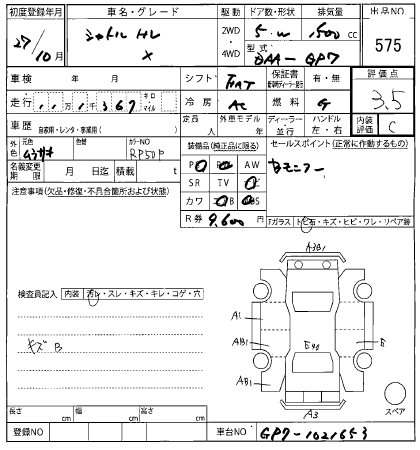 初度登録年月 車名・グレード 駆動 ドア数・形状 排気量 出品NO
27/10月 シャトル HV X 2WD・4WD 5.W 1500cc 575
型式 DAA-GP7
車検 年 月 シフト FAT 保証書 有・無 評価点
走行 キロ・マイル 冷房 AC 燃料 G 3.5
車歴 自家用・レンタ・事業用( ) 定員 外車モデル 年 ディーラー・並行 ハンドル 左・右 内装評価 C
外色 元色 色替 カラーNO RP50P
装備品(純正品に限る) セールスポイント(正常に作動するもの)
名義変更期限 月 日迄 積載 t
AW
SR TV
カワ
注意事項(欠品・修復・不具合箇所および状態)
R券 9,600円
Fガラス トビ石・キズ・ヒビ・ワレ・リペア跡
検査員記入 内装 汚レ・スレ・キズ・キレ・コゲ・穴
キズ B
A3B1
A1
AB1
AB1
E
A3
スペア
長さ cm 幅 cm 高さ cm
登録NO 車台NO GP7-1021653